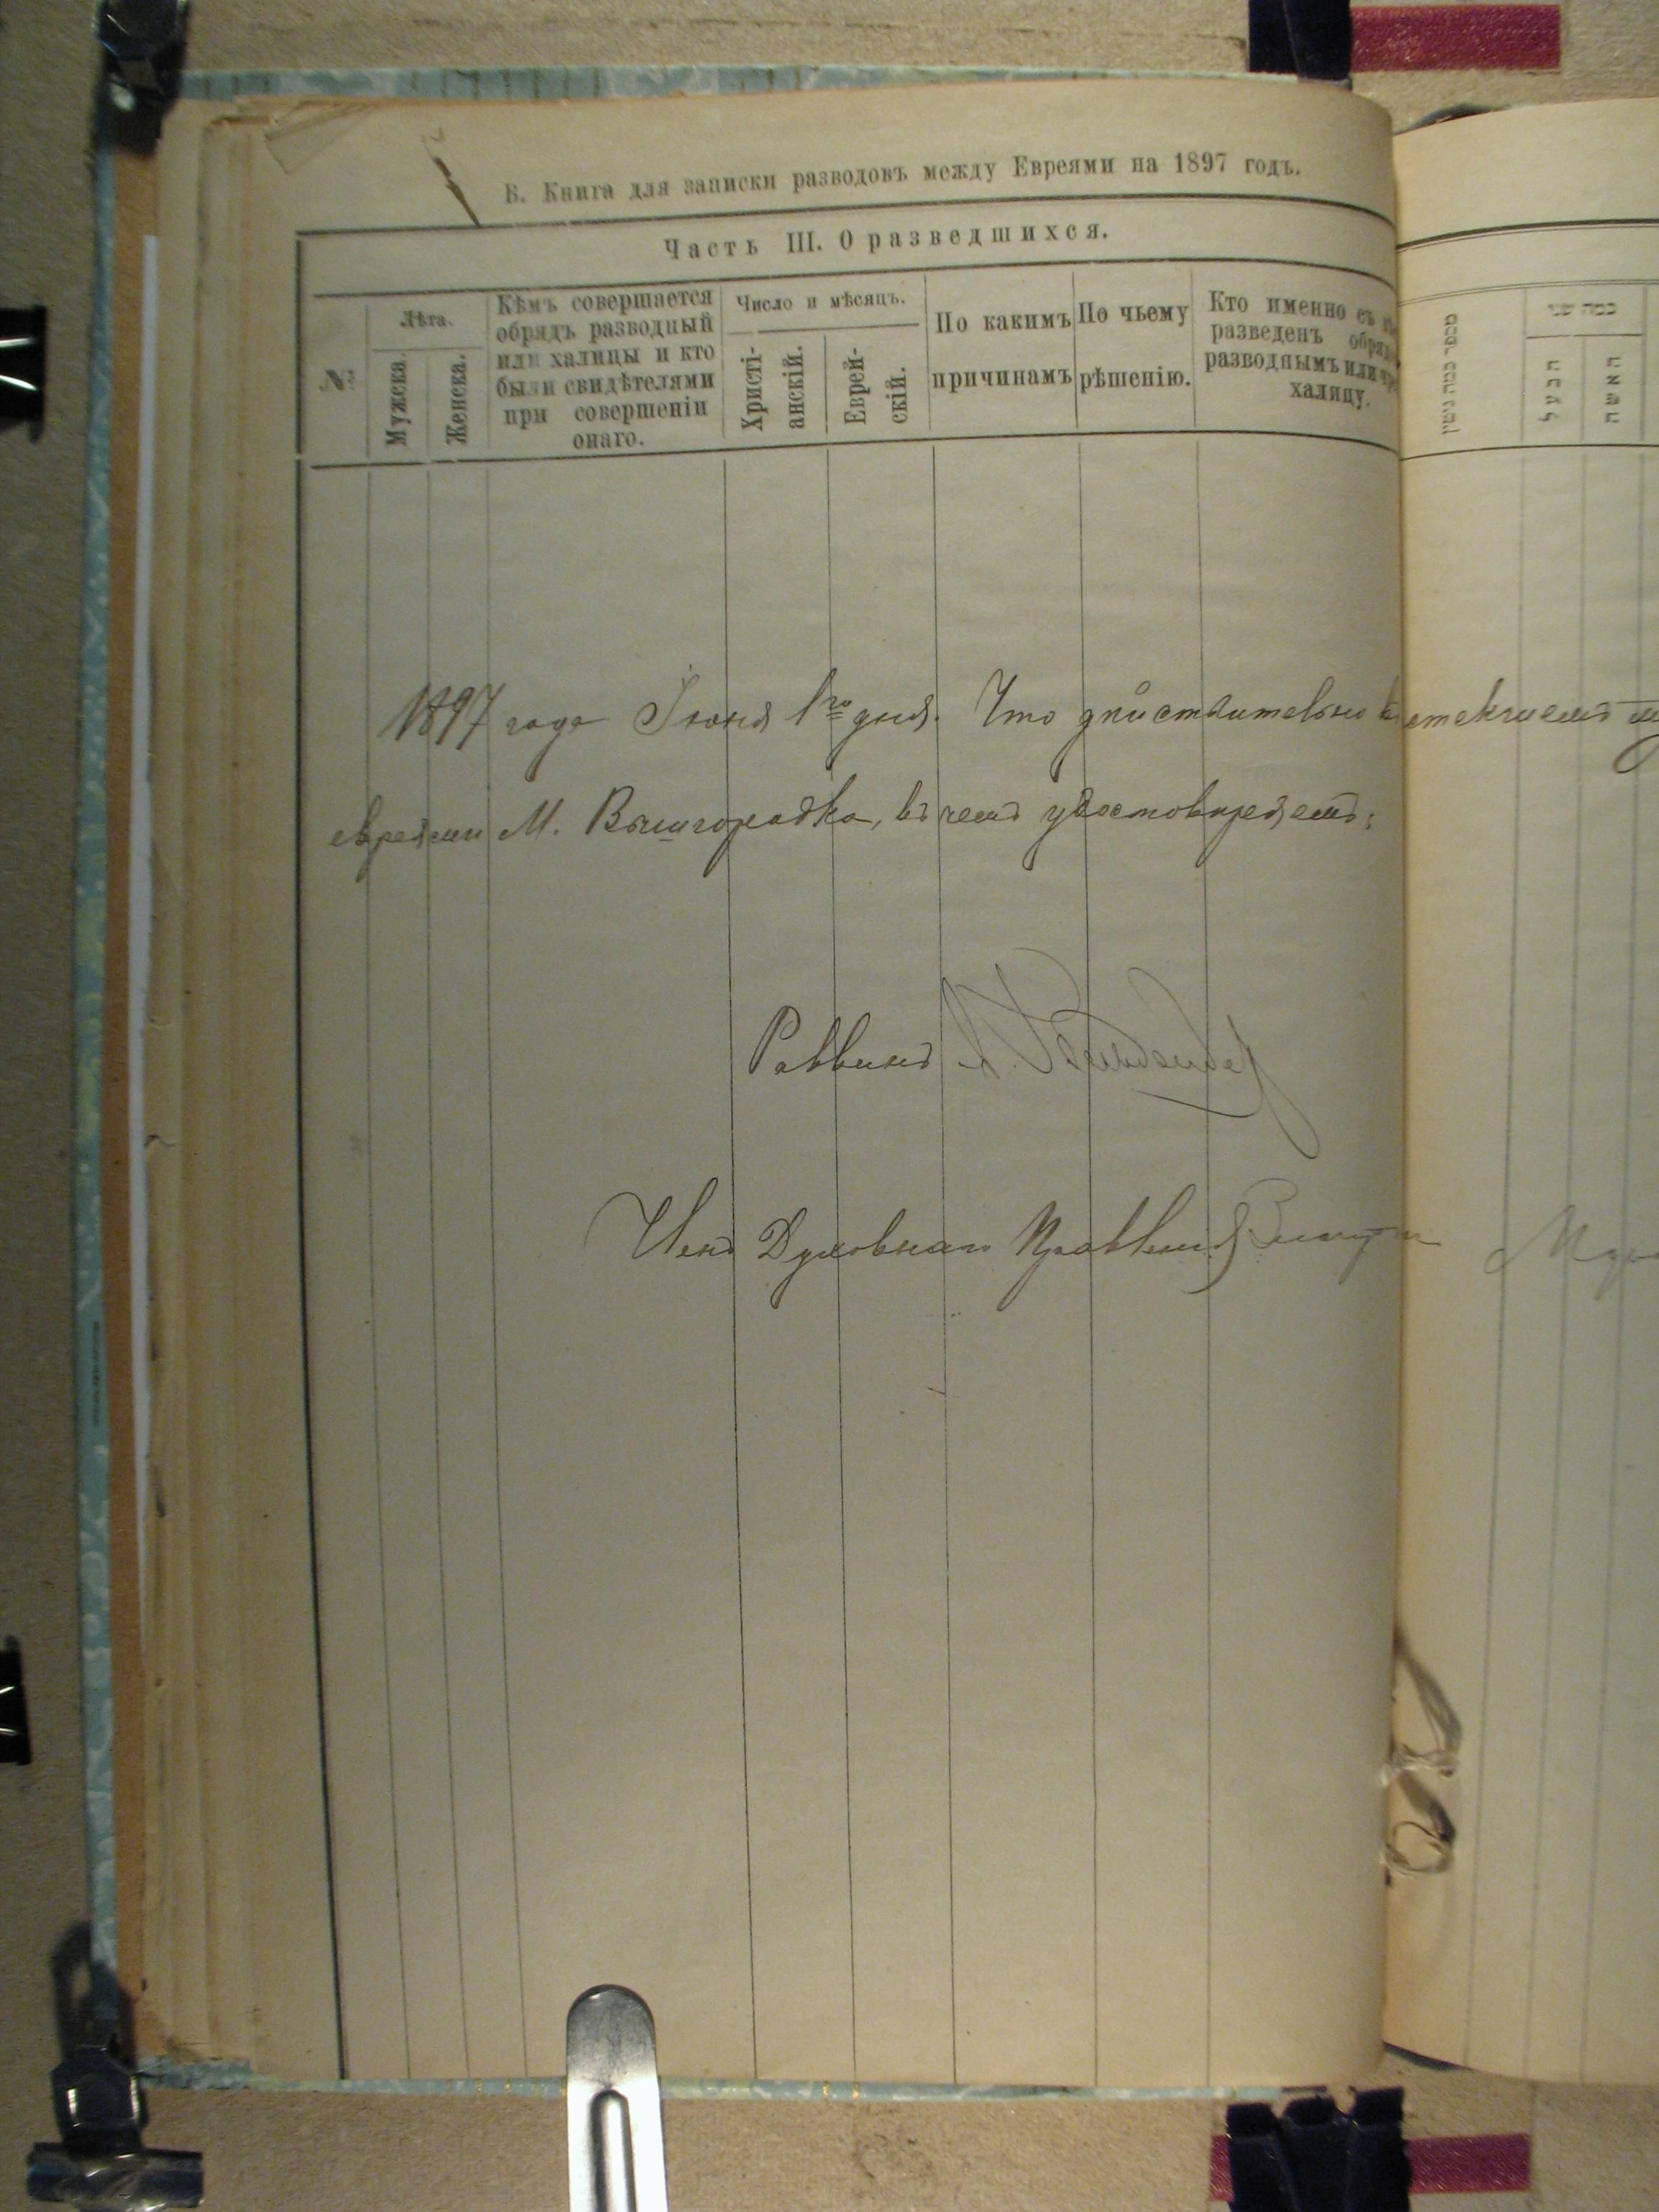 В. Книга для записки разводовъ между Евреями на 1897 годъ.
Часть III. О разведшихся.
№
Лѣта.
Мужеска.
Женска.
Кѣмъ совершается
обрядъ разводный
или халицы и кто
были свидѣтелями
при совершеніи
онаго.
Число и мѣсяцъ.
Христі-
анскій.
Еврей-
скій.
По какимъ
причинамъ
По чьему
рѣшенію.
Кто именно съ
разведенъ
разводнымъ или
халицу.
מספר כמה גיטין
כמה שני
הבעל
האשה
1897 года Іюня 1го дня. Что дѣйствительно въ истекшемъ
евреями М. Вышгородка, въ чемъ удостовѣряемъ:
Раввинъ
Членъ Духовнаго Правленія